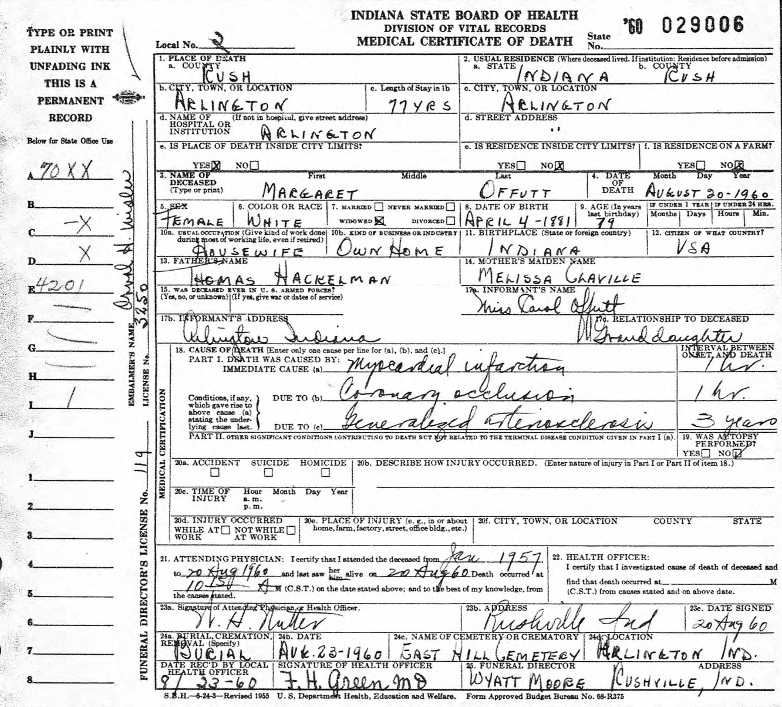 INDIANA STATE BOARD OF HEALTH
DIVISION OF VITAL RECORDS
MEDICAL CERTIFICATE OF DEATH
Local No. 2
State No. '60 029006
TYPE OR PRINT
PLAINLY WITH
UNFADING INK
THIS IS A
PERMANENT
RECORD
Below for State Office Use
A. 70XX
B.
C. -X
D. X
E. 4201
F.
G.
H.
I. 1
J.
1.
2.
3.
4.
5.
6.
7.
8.
EMBALMER'S NAME
LICENSE No. 3250
FUNERAL DIRECTOR'S LICENSE No. 119
MEDICAL CERTIFICATION
1. PLACE OF DEATH
a. COUNTY RUSH
2. USUAL RESIDENCE (Where deceased lived. If institution: Residence before admission)
a. STATE INDIANA b. COUNTY RUSH
b. CITY, TOWN, OR LOCATION ARLINGTON
c. Length of Stay in 1b 77 YRS
c. CITY, TOWN, OR LOCATION ARLINGTON
d. NAME OF HOSPITAL OR INSTITUTION (If not in hospital, give street address) ARLINGTON
d. STREET ADDRESS "
e. IS PLACE OF DEATH INSIDE CITY LIMITS?
YES☒ NO☐
e. IS RESIDENCE INSIDE CITY LIMITS?
YES☐ NO☒
f. IS RESIDENCE ON A FARM?
YES☐ NO☒
3. NAME OF DECEASED (Type or print) First Middle Last
MARGARET OFFUTT
4. DATE OF DEATH Month Day Year
AUGUST 20-1960
5. SEX FEMALE
6. COLOR OR RACE WHITE
7. MARRIED☐ NEVER MARRIED☐
WIDOWED☒ DIVORCED☐
8. DATE OF BIRTH APRIL 4-1881
9. AGE (In years last birthday) 79
IF UNDER 1 YEAR Months Days
IF UNDER 24 HRS. Hours Min.
10a. USUAL OCCUPATION (Give kind of work done during most of working life, even if retired) HOUSEWIFE
10b. KIND OF BUSINESS OR INDUSTRY OWN HOME
11. BIRTHPLACE (State or foreign country) INDIANA
12. CITIZEN OF WHAT COUNTRY? USA
13. FATHER'S NAME THOMAS HACKELMAN
14. MOTHER'S MAIDEN NAME MELISSA CLAVILLE
15. WAS DECEASED EVER IN U. S. ARMED FORCES?
(Yes, no, or unknown) (If yes, give war or dates of service)
17a. INFORMANT'S NAME Miss Carol Offutt
17b. INFORMANT'S ADDRESS Arlington Indiana
17c. RELATIONSHIP TO DECEASED Granddaughter
18. CAUSE OF DEATH [Enter only one cause per line for (a), (b), and (c).]
INTERVAL BETWEEN ONSET, AND DEATH
PART I. DEATH WAS CAUSED BY:
IMMEDIATE CAUSE (a) Myocardial infarction 1 hr.
Conditions, if any, which gave rise to above cause (a) stating the underlying cause last.
DUE TO (b) Coronary occlusion 1 hr.
DUE TO (c) Generalized arteriosclerosis 3 years
PART II. OTHER SIGNIFICANT CONDITIONS CONTRIBUTING TO DEATH BUT NOT RELATED TO THE TERMINAL DISEASE CONDITION GIVEN IN PART I (a)
19. WAS AUTOPSY PERFORMED?
YES☐ NO☑
20a. ACCIDENT☐ SUICIDE☐ HOMICIDE☐
20b. DESCRIBE HOW INJURY OCCURRED. (Enter nature of injury in Part I or Part II of item 18.)
20c. TIME OF INJURY Hour a. m. p. m. Month Day Year
20d. INJURY OCCURRED
WHILE AT WORK☐ NOT WHILE AT WORK☐
20e. PLACE OF INJURY (e. g., in or about home, farm, factory, street, office bldg., etc.)
20f. CITY, TOWN, OR LOCATION COUNTY STATE
21. ATTENDING PHYSICIAN: I certify that I attended the deceased from Jan 1957
to 20 Aug 1960 and last saw her him alive on 20 Aug 60 Death occurred at
10:15 A M (C.S.T.) on the date stated above; and to the best of my knowledge, from the causes stated.
22. HEALTH OFFICER:
I certify that I investigated cause of death of deceased and
find that death occurred at M
(C.S.T.) from causes stated and on above date.
23a. Signature of Attending Physician or Health Officer. W. H. Nutter
23b. ADDRESS Rushville Ind
23c. DATE SIGNED 20 Aug 60
24a. BURIAL, CREMATION, REMOVAL (Specify) BURIAL
24b. DATE AUG. 23-1960
24c. NAME OF CEMETERY OR CREMATORY EAST HILL CEMETERY
24d. LOCATION ARLINGTON IND.
DATE REC'D BY LOCAL HEALTH OFFICER 8/23-60
SIGNATURE OF HEALTH OFFICER F. H. Green MD
25. FUNERAL DIRECTOR WYATT MOORE
ADDRESS RUSHVILLE, IND.
S.B.H.—6-24-3—Revised 1955 U. S. Department Health, Education and Welfare. Form Approved Budget Bureau No. 68-R375